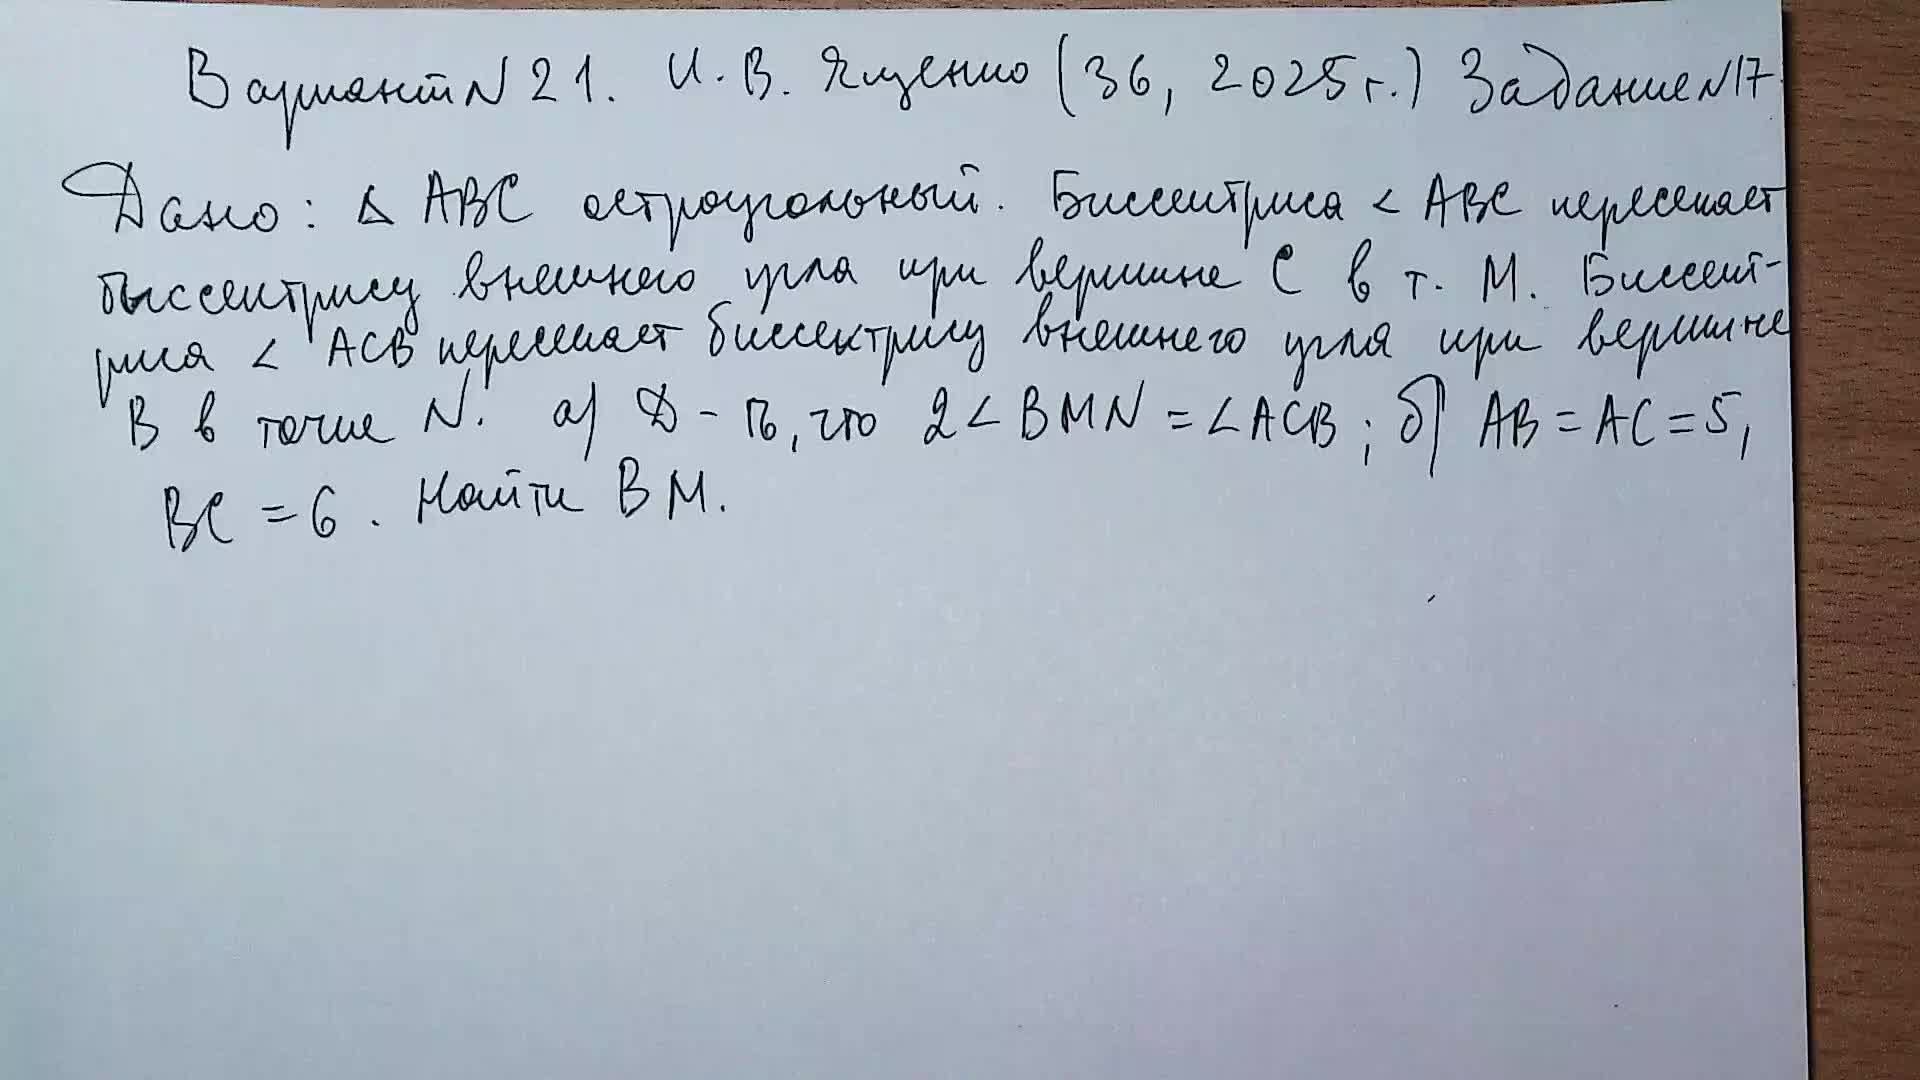 Вариант N 21. И. В. Ященко (36, 2025 г.) Задание N17.
Дано: Δ ABC остроугольный. Биссектриса < ABC пересекает
биссектрису внешнего угла при вершине C в т. M. Биссект-
риса < ACB пересекает биссектрису внешнего угла при вершине
B в точке N. а) Д-ть, что 2<BMN = <ACB; б) AB = AC = 5,
BC = 6. Найти BM.